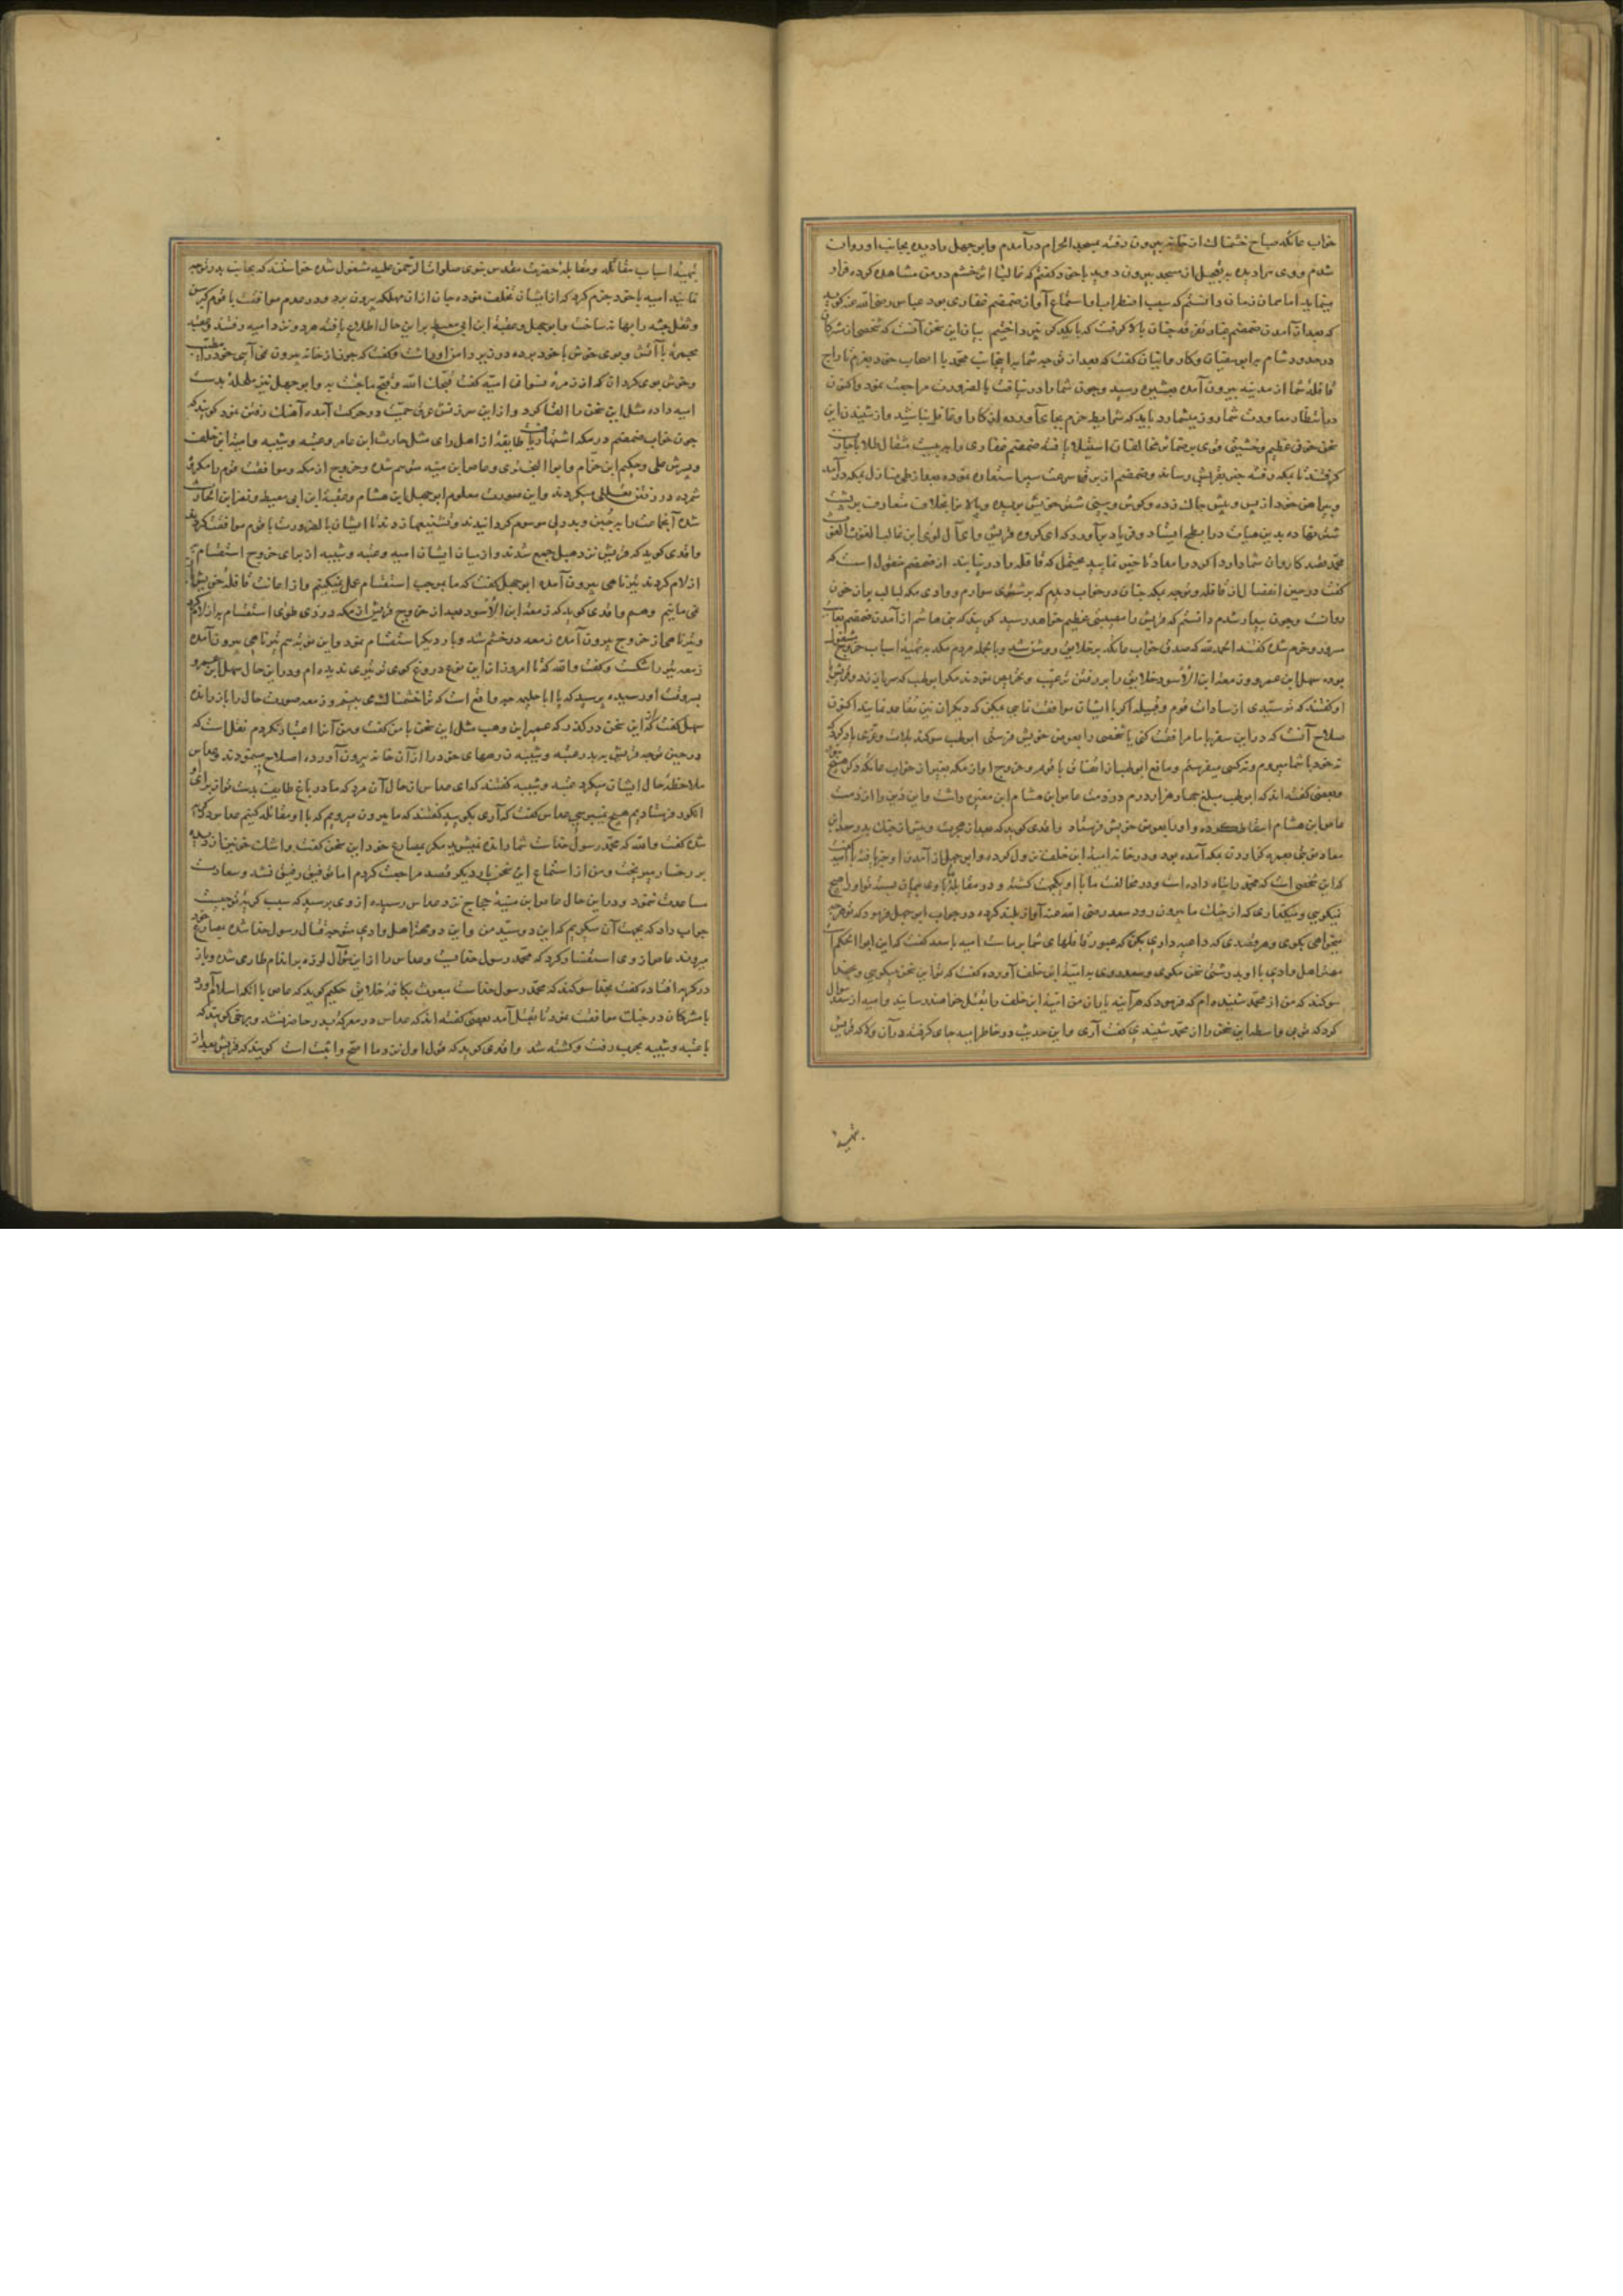 خواب عاتکه صباح خشمناک از خانه بیرون رفته بمسجد الحرام درآمدم و ابوجهل را دیده بجانب او روان
شدم و وی مرا دیده بتعجیل از مسجد بیرون دوید با خود گفتم که غالبا اثر خشم در من مشاهده کرده فرار
مینماید اما همان زمان دانستم که سبب اضطراب او استماع آواز ضمضم غفاری بود عباس رضی الله عنه گوید
که بعد از آمدن ضمضم غبار تفرقه چنان بالا گرفت که با یکدیگر نپرداختیم بیان این سخن آنست که شخصی از مشرکان
در حدود شام با ابو سفیان و کاروانیان گفت که بعد از توجه شما بدین جانب محمد با اصحاب خود بعزم تاراج
قافله شما از مدینه بیرون آمده بعشیره رسید و چون شما را درنیافت بالضرورت مراجعت نمود و اکنون
در انتظار معاودت شما روز میشمارد باید که شرایط حزم بجای آورده از کار او غافل نباشید و از شنیدن این
سخن خوفی عظیم و خشیتی قوی بر ضمائر مخالفان استیلا یافته ضمضم غفاری را به بیست مثقال طلا باجارت
گرفتند تا بمکه رفته خبر بقریش رساند و ضمضم از برق سرعت سیر استعاره نموده بعد از طی منازل بمکه درآمد
و پیراهن خود از پس و پیش چاک زده و گوش و بینی شتر خویش بریده و پالان را بخلاف متعارف بر پشت
شتر نهاده بدین هیات در ابطح ایستاد و فریاد برآورد که ای گروه قریش و ای آل لوی ابن غالب الغوث الغوث
محمد قصد کاروان شما دارد
گفت در حین انفصال از قافله و توجه بمکه چنان در خواب دیدم که بر شتری سوارم و وادی مکه لبالب پر از خون
روانست و چون بیدار شدم دانستم که قریش را مصیبتی عظیم خواهد رسید گویند که بنی هاشم از آمدن ضمضم بغایت
مسرور و خرم شده گفتند الحمد لله که صدق خواب عاتکه بر خلایق روشن شد و بالجمله مردم مکه بتهیه اسباب خروج مشغول
بوده سهل ابن عمرو و زمعه ابن الاسود خلایق را بر رفتن ترغیب و تحریص نمودند مگر ابو لهب که سر باز زد و قریش با
او گفتند که تو سیدی از سادات قوم و قبیله اگر با ایشان موافقت نکنی ممکن که دیگران نیز تقاعد نمایند اکنون
صلاح آنست که در این سفر با ما مرافقت کنی یا شخصی را بعوض خویش فرستی ابو لهب سوگند بلات و عزی یاد کرد که
نه خود با شما میروم و نه کسی میفرستم و مانع ابو لهب از اتفاق با قوم و خروج او از مکه بغیر از خواب عاتکه دیگر هیچ نبود
و بعضی گفته اند که ابو لهب مبلغ چهار هزار درم در ذمت عاص ابن هشام ابن مغیره داشت و این دین را از ذمت
عاص ابن هشام اسقاط کرده و او را بعوض خویش فرستاد واقدی گوید که بعد از هجرت و پیش از جنگ بدر سعد ابن
معاذ بنیت عمره گزاردن مکه آمده بود و در خانه امیه ابن خلف نزول کرده و ابوجهل از آمدن او خبر یافته با امیه گفت
که این شخصی است که محمد را پناه داده است و در مخالفت ما با او یکجهت گشته و در مقابله با وی میان بسته تو او را هیچ
نمیگویی و میگذاری که از چنگ ما بیرون رود سعد رضی الله عنه آواز بلند کرده در جواب ابوجهل فرمود که تو هر چه
میخواهی بگوی و هر قصدی که داعیه داری بکن که عبور قافلهای شما بر ماست امیه با سعد گفت که این ابو الحکم است
مهتر اهل وادی با او بدرشتی سخن مگوی و سعد روی به امیه ابن خلف آورده گفت که تو این سخن میگویی و بخدا
سوگند که من از محمد شنیده ام که فرمود که هر آینه یاران من امیه ابن خلف را بقتل خواهند رسانید و امیه از سعد سوال
کرد که تو بی واسطه این سخن را از محمد شنیدی گفت آری و این حدیث در خاطر امیه جای گرفت و در آن ولا که قریش
بتهیه
بتهیه اسباب مقاتله و مقابله حضرت مقدس نبوی صلوات الرحمن علیه مشغول شده خواستند که بجانب بدر توجه
نمایند امیه با خود جزم کرد که از ایشان تخلف نموده جان از آن مهلکه بیرون برد و در عدم موافقت با قوم کبر سن
و ثقل جثه را بهانه ساخت و ابوجهل و عقبه ابن ابی معیط بر این حال اطلاع یافته هر دو نزد امیه رفتند و عقبه
مجمره با آتش و بوی خوش با خود برده در زیر دامن او داشت و گفت که چون از خانه بیرون نمی آیی خود را مطیب
و خوش بوی گردان که از زمره نسوانی امیه گفت قبحک الله و قبح ما جئت به و ابوجهل نیز مکحله بدست
امیه داده مثل این سخن را القا کرد و از این سرزنش عرق حمیت در حرکت آمده آهنگ رفتن نمود گویند که
چون خواب ضمضم در مکه اشتهار یافت طایفه از اهل رای مثل حارث ابن عامر و عتبه و شیبه و امیه ابن خلف
و پسرش علی و حکیم ابن حزام و ابو البختری و عاص ابن منبه متوهم شده و خروج از مکه و موافقت قوم را مکروه
شمرده در رفتن تعللی میکردند و این صورت معلوم ابوجهل ابن هشام و عقبه ابن ابی معیط و نضر ابن الحارث
شده آنجماعت را بجبن و بددلی موسوم گردانیدند و تشنیعها زدند تا ایشان بالضرورت با قوم موافقت کردند
واقدی گوید که قریش نزد هبل جمع شدند و از میان ایشان امیه و عتبه و شیبه از برای خروج استقسام به
ازلام کردند تیر ناهی بیرون آمد ابوجهل گفت که ما بموجب استقسام عمل نمیکنیم و از اعانت قافله خویش باز
نمی مانیم و هم واقدی گوید که زمعه ابن الاسود بعد از خروج قریش از مکه در ذی طوی استقسام به ازلام کرد
و تیر ناهی از خروج بیرون آمد زمعه در خشم شد و بار دیگر استقسام نمود و این نوبت هم تیر ناهی بیرون آمد
زمعه تیر را شکست و گفت والله که تا امروز از این نوع دروغ گوی تر تیری ندیده ام و در این حال سهل ابن عمرو
بسروقت او رسیده پرسید که یا ابا حکیمه چه واقع است که ترا خشمناک می بینم و زمعه صورت حال را باز راند
سهل گفت که از این سخن درگذر که عمیر ابن وهب مثل این سخن با من گفت و من آنرا اعتبار نکردم نقل است که
در حین توجه قریش ببدر عتبه و شیبه زرههای خود را از آن خانه بیرون آورده اصلاح مینمودند و عداس
ملاحظه حال ایشان میکرد عتبه و شیبه گفتند که ای عداس از حال آن مرد که ما در باغ طایف بدست تو از برای او
انگور فرستادیم هیچ میپرسی عداس گفت که آری بگویید گفتند که ما بیرون میرویم که با او مقاتله کنیم عداس گریان
شده گفت والله که محمد رسول خداست شما رانده نمیشوید مگر بمصارع خود این سخن گفت و اشک خونین از دیده
بر رخسار میریخت و من از استماع این سخن بار دیگر قصد مراجعت کردم اما توفیق رفیق نشد و سعادت
مساعدت ننمود و در این حال عاص ابن منبه حجاج نزد عداس رسیده از وی پرسید که سبب گریه تو چیست
جواب داد که بجهت آن میگریم که این دو سید من و این دو مهتر اهل وادی متوجه قتال رسول خدا شده بمصارع خود
میروند عاص از وی استفسار کرد که محمد رسول خداست و عداس را از این سوال لرزه بر اندام طاری شده و باز
در گریه افتاده گفت بخدا سوگند که محمد رسول خداست مبعوث بکافه خلایق حکیم گوید که عاص با آنکه اسلام آورد
با مشرکان در جنگ موافقت نمود تا بقتل آمد بعضی گفته اند که عداس در معرکه بدر حاضر نشد و برخی گویند که
با عتبه و شیبه بحرب رفت و کشته شد واقدی گوید که قول اول نزد ما اصح و اثبت است گویند که قریش بعد از